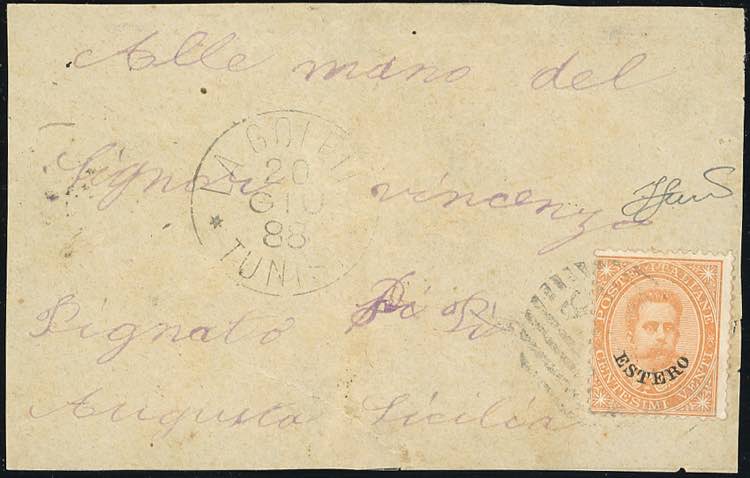 Alle mano del
LA GOLETTA
20
GIU
88
* TUNISI
Signori vincenzo
Pignato Di
Augusta Sicilia
POSTE ITALIANE
ESTERO
CENTESIMI VENTI